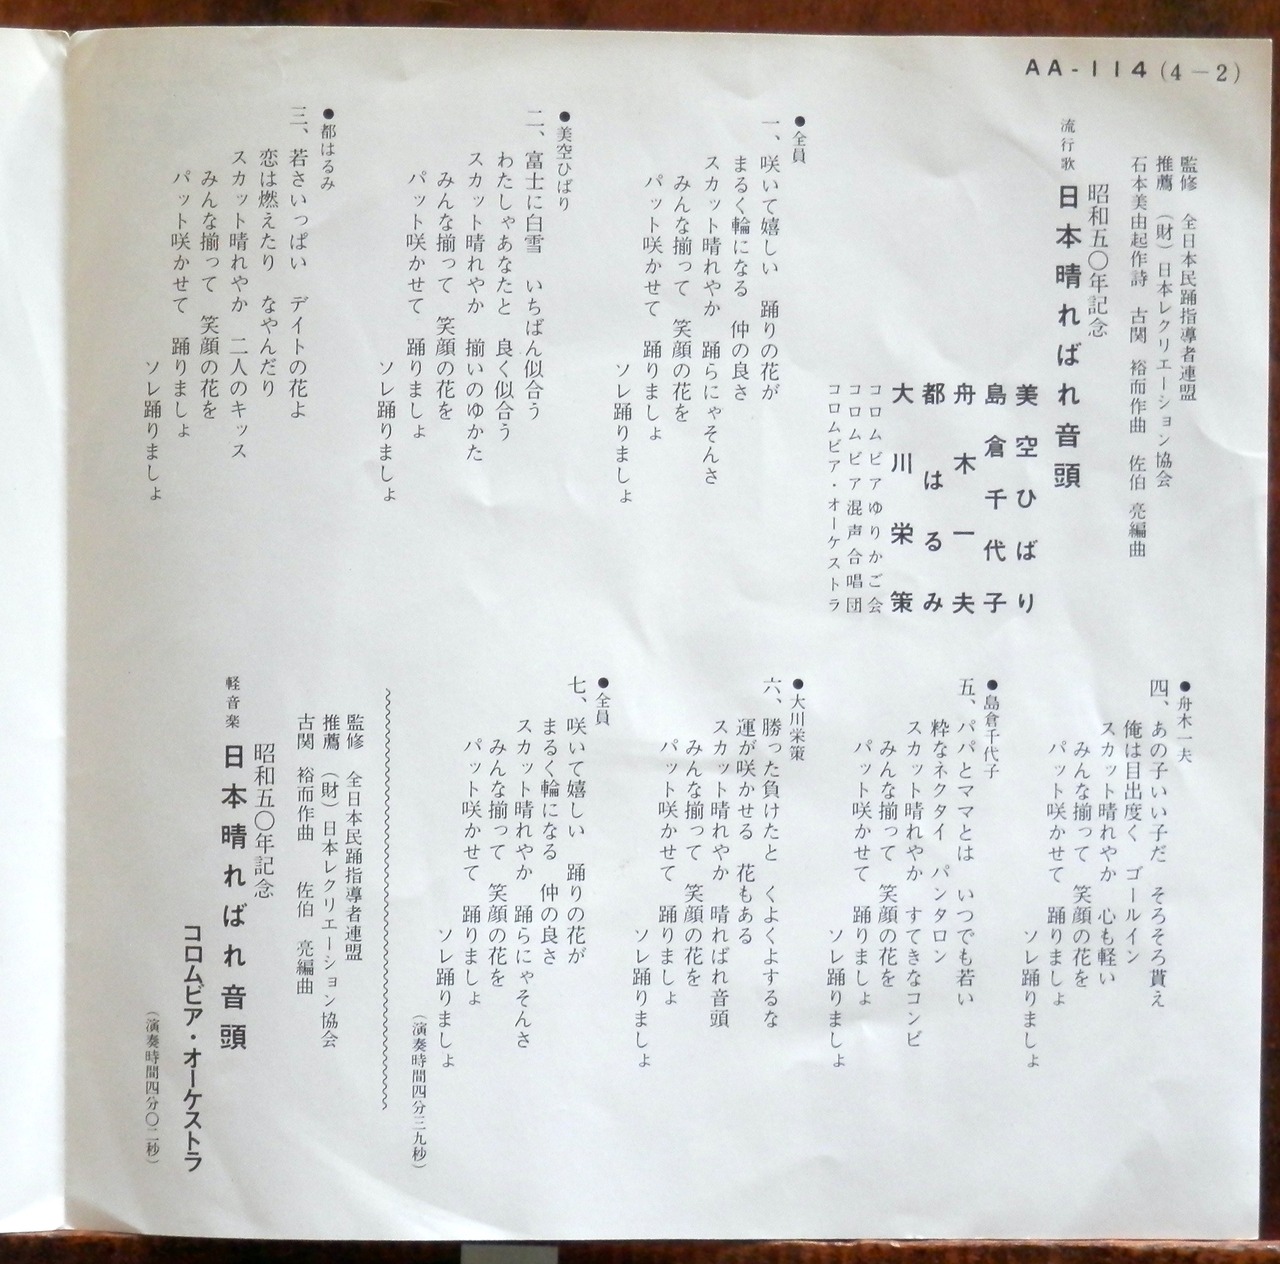 AA-114(4-2)
監修　全日本民踊指導者連盟
推薦　(財)日本レクリエーション協会
石本美由起作詩　古関　裕而作曲　佐伯　亮編曲
昭和五〇年記念
流行歌　日本晴ればれ音頭
美空ひばり
島倉千代子
舟木一夫
都はるみ
大川栄策
コロムビアゆりかご会
コロムビア混声合唱団
コロムビア・オーケストラ
●全員
一、咲いて嬉しい　踊りの花が
まるく輪になる　仲の良さ
スカット晴れやか　踊らにゃそんさ
みんな揃って　笑顔の花を
パット咲かせて　踊りましょ
ソレ踊りましょ
●美空ひばり
二、富士に白雪　いちばん似合う
わたしゃあなたと　良く似合う
スカット晴れやか　揃いのゆかた
みんな揃って　笑顔の花を
パット咲かせて　踊りましょ
ソレ踊りましょ
●都はるみ
三、若さいっぱい　デイトの花よ
恋は燃えたり　なやんだり
スカット晴れやか　二人のキッス
みんな揃って　笑顔の花を
パット咲かせて　踊りましょ
ソレ踊りましょ
●舟木一夫
四、あの子いい子だ　そろそろ貰え
俺は目出度く　ゴールイン
スカット晴れやか　心も軽い
みんな揃って　笑顔の花を
パット咲かせて　踊りましょ
ソレ踊りましょ
●島倉千代子
五、パパとママとは　いつでも若い
粋なネクタイ　パンタロン
スカット晴れやか　すてきなコンビ
みんな揃って　笑顔の花を
パット咲かせて　踊りましょ
ソレ踊りましょ
●大川栄策
六、勝った負けたと　くよくよするな
運が咲かせる　花もある
スカット晴れやか　晴ればれ音頭
みんな揃って　笑顔の花を
パット咲かせて　踊りましょ
ソレ踊りましょ
●全員
七、咲いて嬉しい　踊りの花が
まるく輪になる　仲の良さ
スカット晴れやか　踊らにゃそんさ
みんな揃って　笑顔の花を
パット咲かせて　踊りましょ
ソレ踊りましょ
(演奏時間四分三九秒)
監修　全日本民踊指導者連盟
推薦　(財)日本レクリエーション協会
古関　裕而作曲　佐伯　亮編曲
昭和五〇年記念
軽音楽　日本晴ればれ音頭
コロムビア・オーケストラ
(演奏時間四分〇二秒)